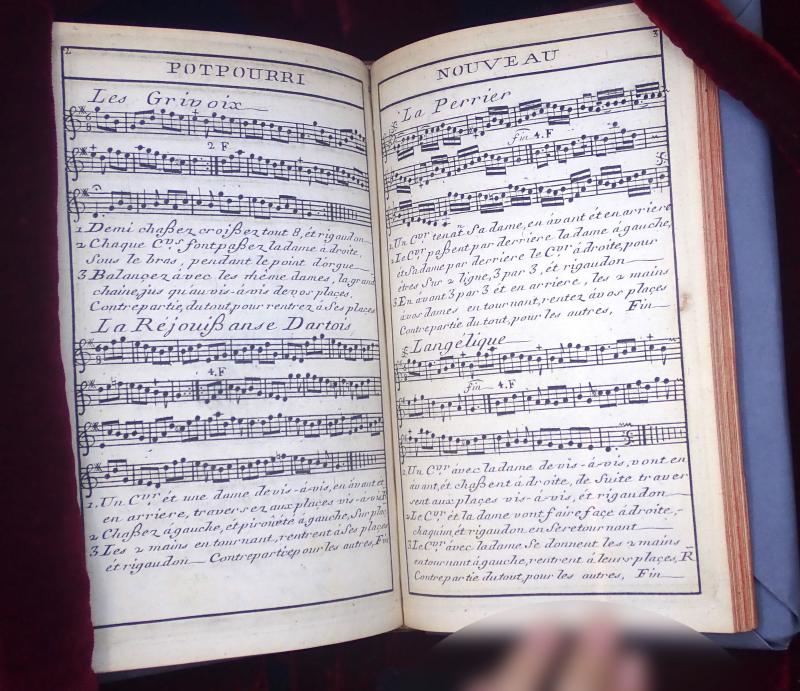 2
POTPOURRI
Les Grivoix
2 F
1 Demi chaßez croißez tout 8, ét rigaudon
2 Chaque C.ns font paßez la dame à droite,
Sous le bras, pendent le point d'orgue
3 Balançez âvec les même dames, la grand
chaine jus qu'au vis-à-vis de vos plaçes.
Contrepartie, du tout, pour rentrez à Ses plaçes
La Réjouißanse Dartois
4. F
1. Un C.vr ét une dame de vis-à-vis, en âvant ét
en arriere, traversez aux plaçes vis-à-vis
2 Chaßez à gauche, ét piroüété à gauche, Sur plaç
3 Les 2 mains en tournant, rentrent à Ses plaç
ét rigaudon Contrepartie pour les autres, Fin
3
NOUVEAU
La Perrier
fin 4. F
1. Un C.vr tenat Sa dame, en âvant ét en arriere
2. Le C.vr paßent par derriere la dame à gauche,
ét Sa dame par derriere le C.vr à droite, pour
êtres Sur 2 ligne, 3 par 3, ét rigaudon
3. En avant 3 par 3 ét en arriere, les 2 mains
âvos dames en tournant, rentez âvos plaçes
Contrepartie du tout, pour les autres, Fin
Langélique
fin 4. F
1. Un C.vr âvec la dame de vis-à-vis, vont en
âvant, ét chaßent à droite, de Suite traver
sent aux plaçes vis-à-vis, ét rigaudon
2 Le C.vr ét la dame vont faire façe à droite,
chaquin, ét rigaudon en Se retournant
3 Le C.vr âvec la dame Se donnent les 2 mains
en tournant à gauche, rentrent à leurs plaçes, R
Contrepartie du tout, pour les autres, Fin